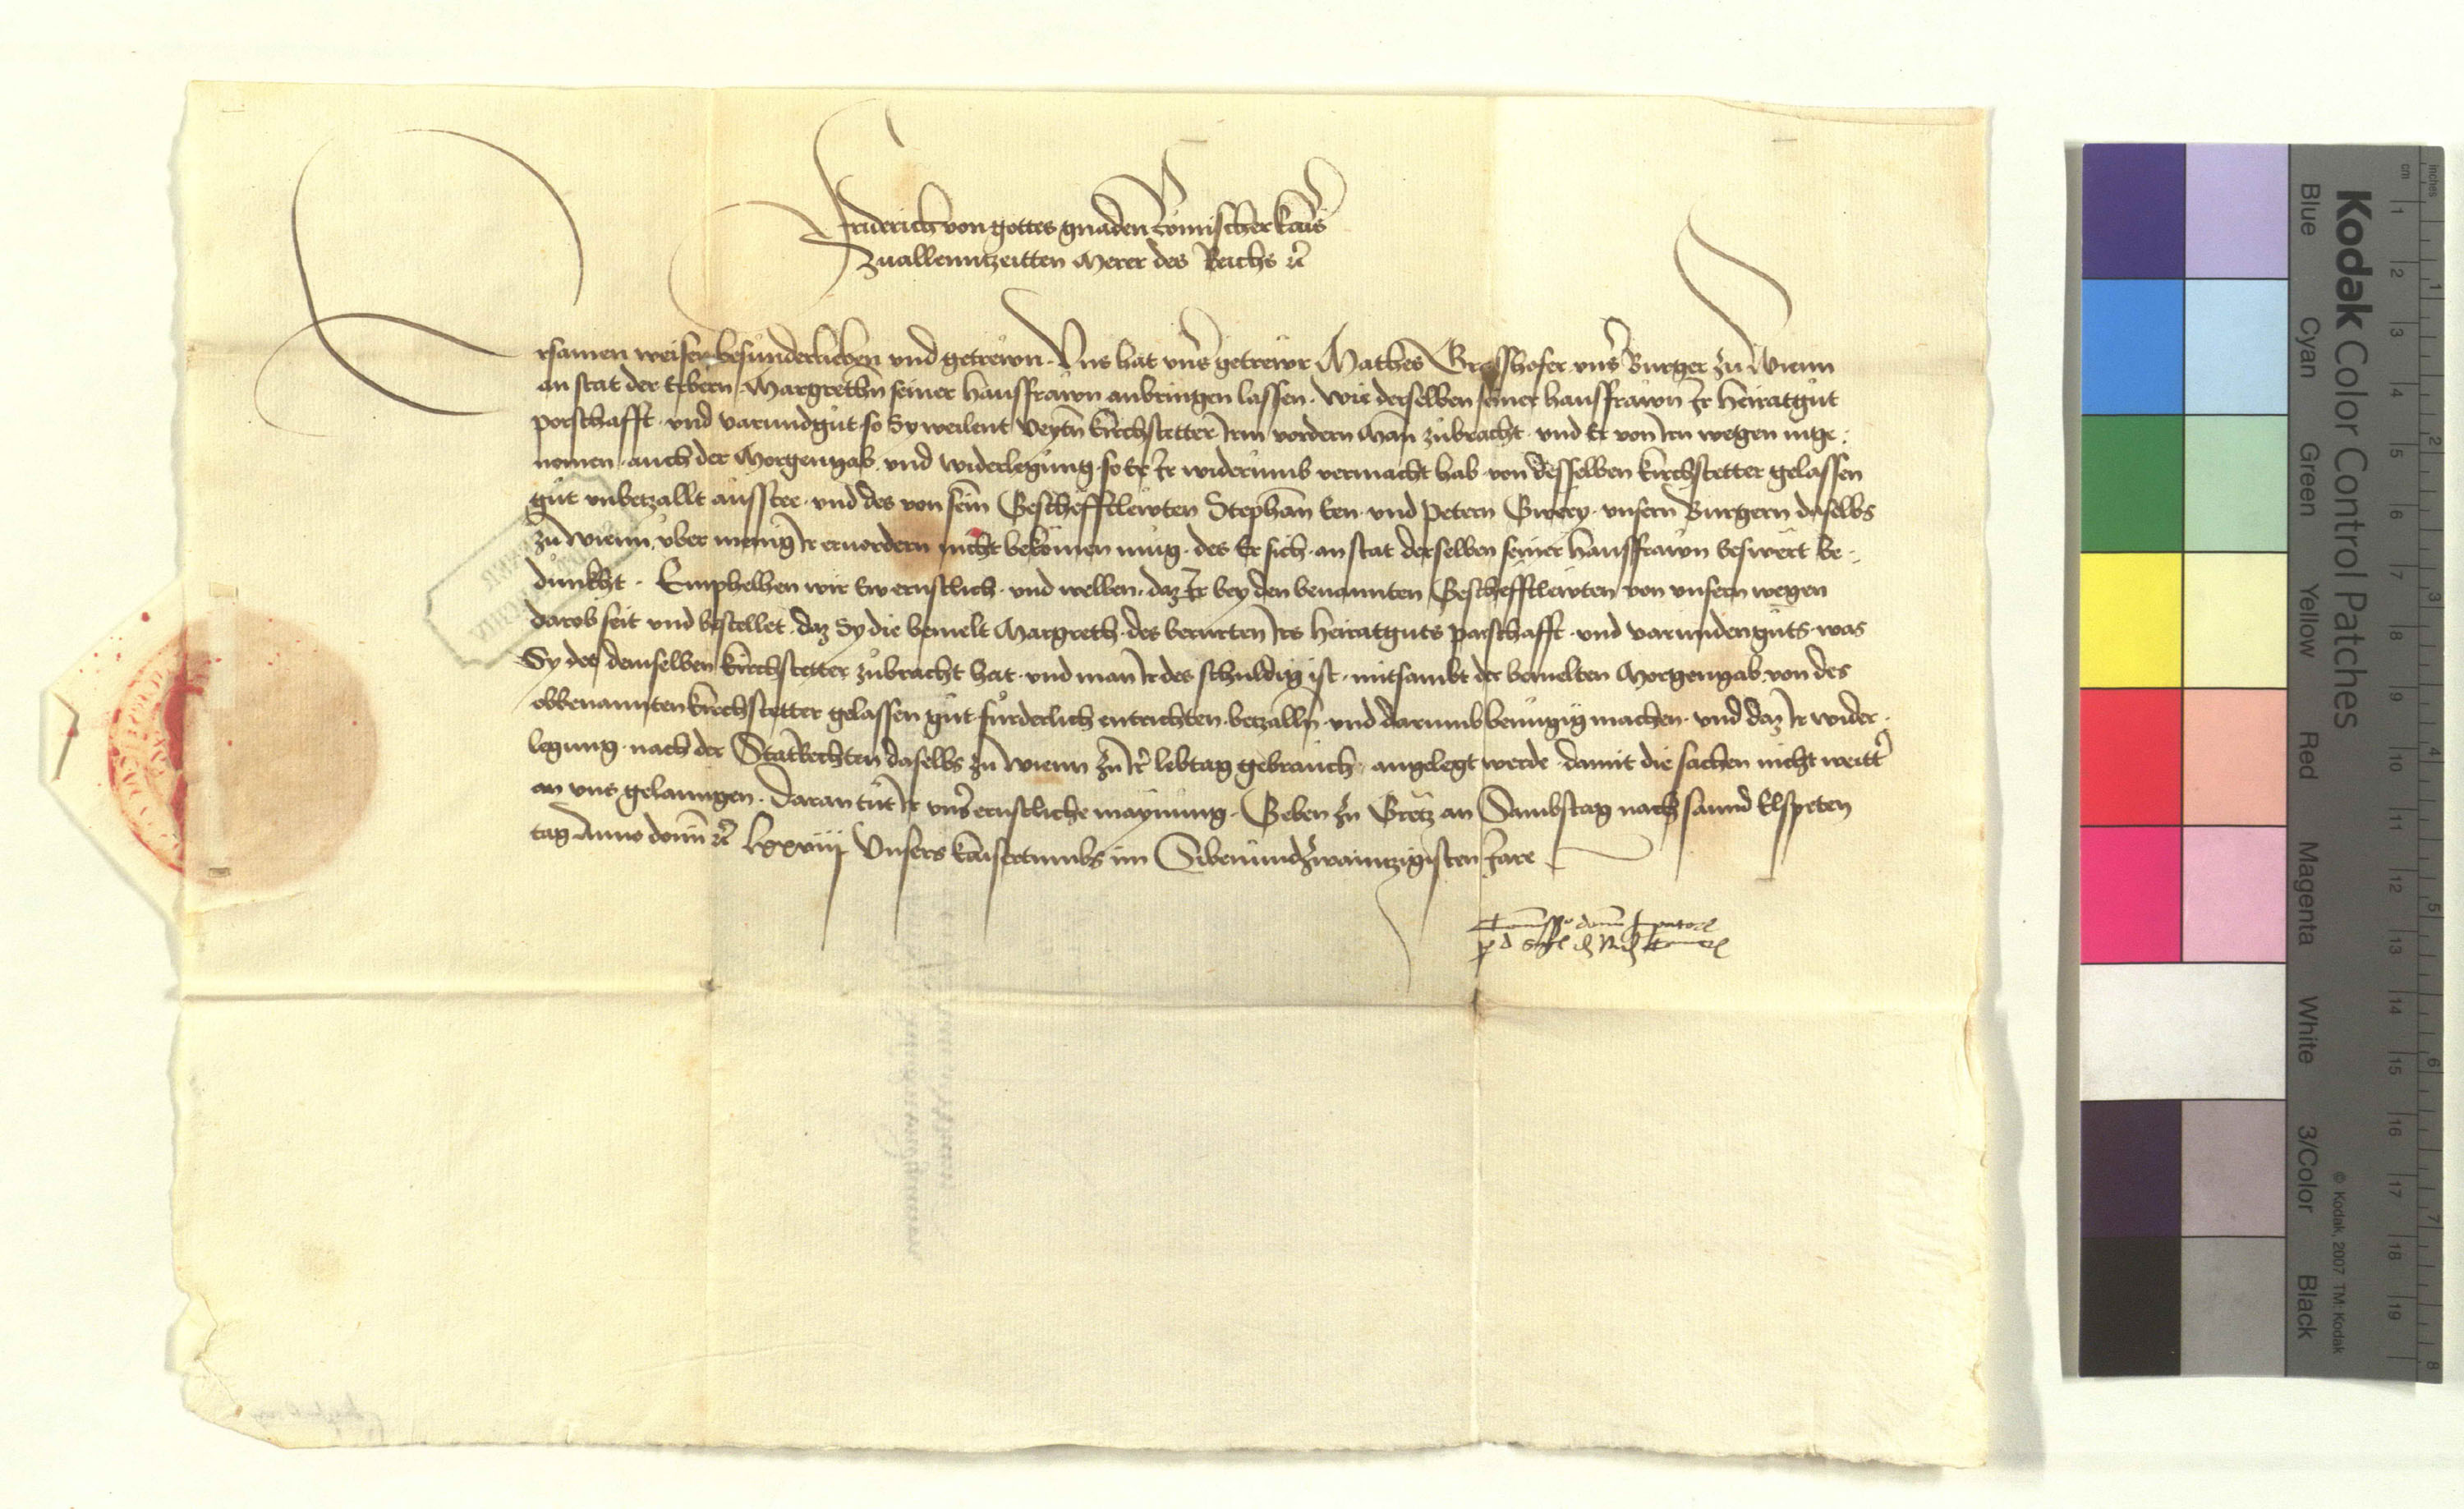 Friderich von gottes gnaden Römischer kaiser
zuallenntzeitten Merer des Reichs etc
Ersamen weisen besunderlieben und getrewn. Uns hat unser getrewr Mathes unser Burger zu Wienn
an stat der Erbern Margrethn seiner hausfrawn anbringen lassen. wie derselben seiner hausfrawn Ir heiratgut
porschafft. und varundgut so Sy weilent Veytn kirchstetter Irm vordern Man zubracht. und Er von Irn wegen inge-
nomen. auch der Morgengab. und widerlegung. so Er Ir widerumb vermacht hab. von desselben kirchstetter gelassen
gut unbetzallt ausstee. und des von sein Geschefftlewten Stephan Een. und Petern unsern Burgern daselbs
zu Wienn. uber menig Ir ervordern nicht bekomen mug. des Er sich. an stat derselben seiner hausfrawn beswert be-
dunkht. Emphelhen wir Ew ernstlich. und wellen. daz Ir bey den benannten Geschefftlewten von unsern wegen
darob seit und bestellet. daz Sy die bemelt Margreth. des berurten Irs heiratguts parschafft. und varunden guts. was
Sy des demselben kirchstetter zubracht hat. und man Ir des schuldig ist. mitsambt der bemelten Morgengab. von des
obbenannten kirchstetter gelassen gut furderlich entrichten. betzalln. und darumb benugig machen. und daz Ir wider-
legung. nach der StatRechten daselbs zu Wienn zu Ir lebtag gebrauch. angelegt werde. damit die sachen nicht weitter
an uns gelanngen. Daran tut Ir unser ernstliche maynung. Geben zu Gretz an Sambstag nach sannd Elspeten
tag Anno domini etc lxxviij Unsers kaisertumbs im Sibenundzwaintzigisten Jare
Commissio domini Imperatoris
Kodak Color Control Patches
Blue Cyan Green Yellow Red Magenta White 3/Color Black
© Kodak, 2007 TM: Kodak
inches 1 2 3 4 5 6 7 8
cm 1 2 3 4 5 6 7 8 9 10 11 12 13 14 15 16 17 18 19